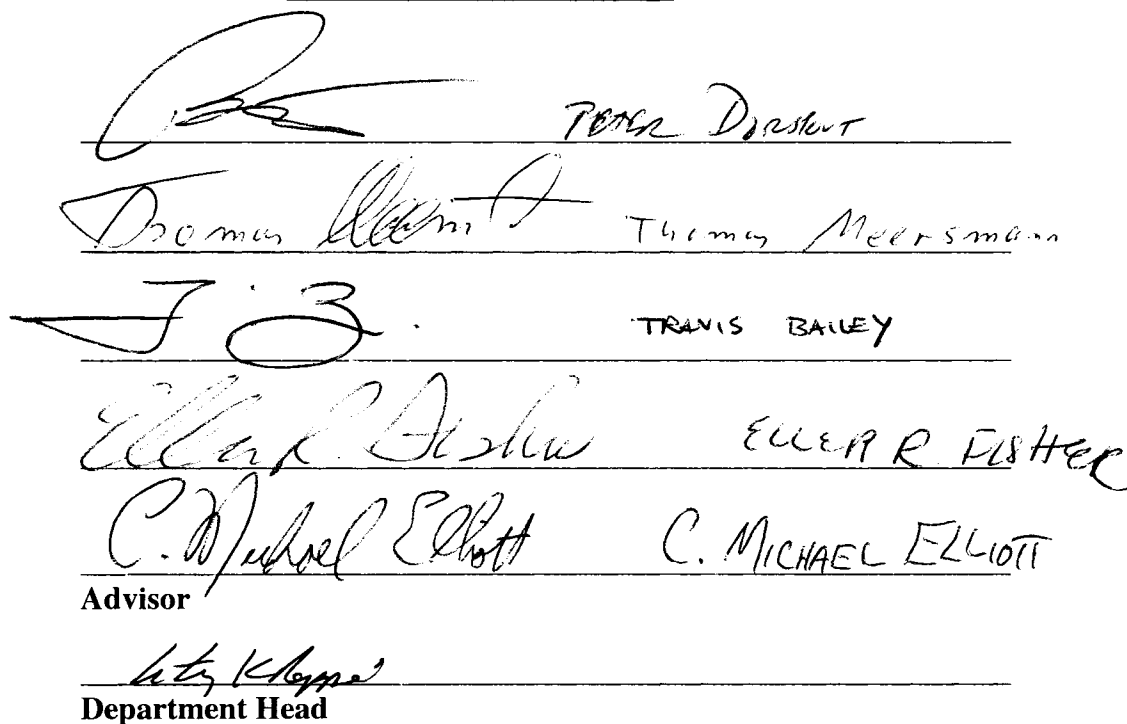 PETER DORHOUT
Thomas Thomas Meersmann
T. B. TRAVIS BAILEY
Ellen R. Fisher ELLEN R FISHER
C. Michael Elliott C. MICHAEL ELLIOTT
Advisor
Department Head